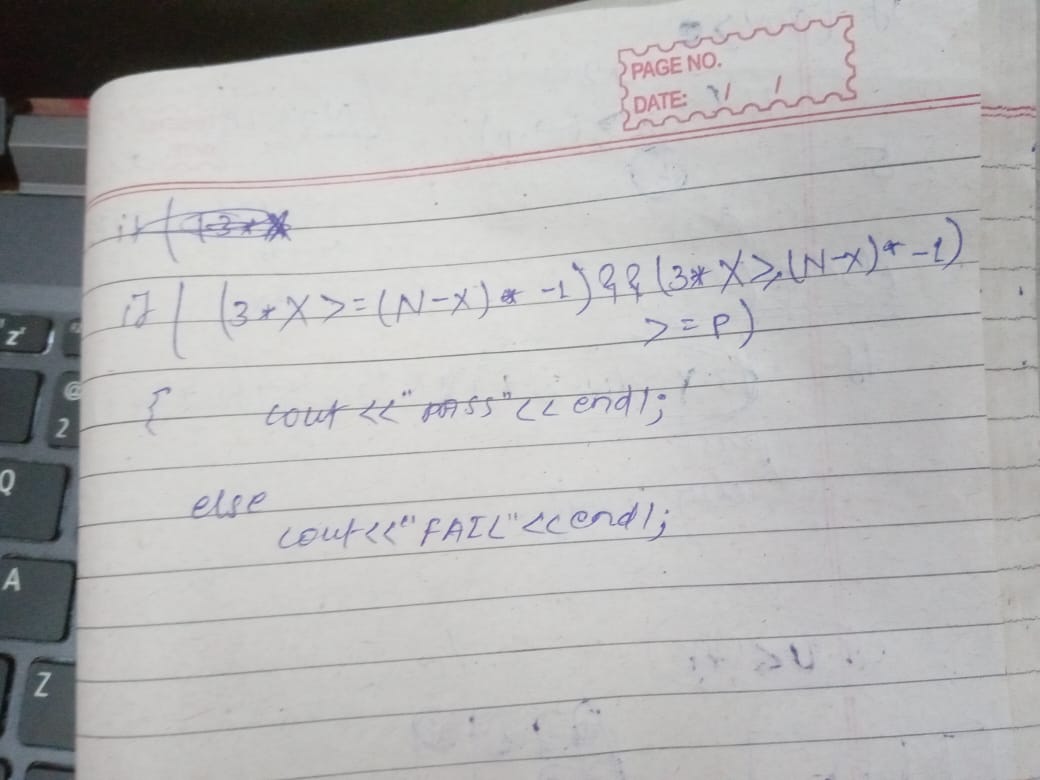 PAGE NO.
DATE: / /
if ( (3*X >= (N-X) * -1) && (3* X >, (N-X)* -1)
>= P)
{ cout << "PASS" << endl;
else
cout<<"FAIL"<<endl;
Z
@
2
Q
A
Z